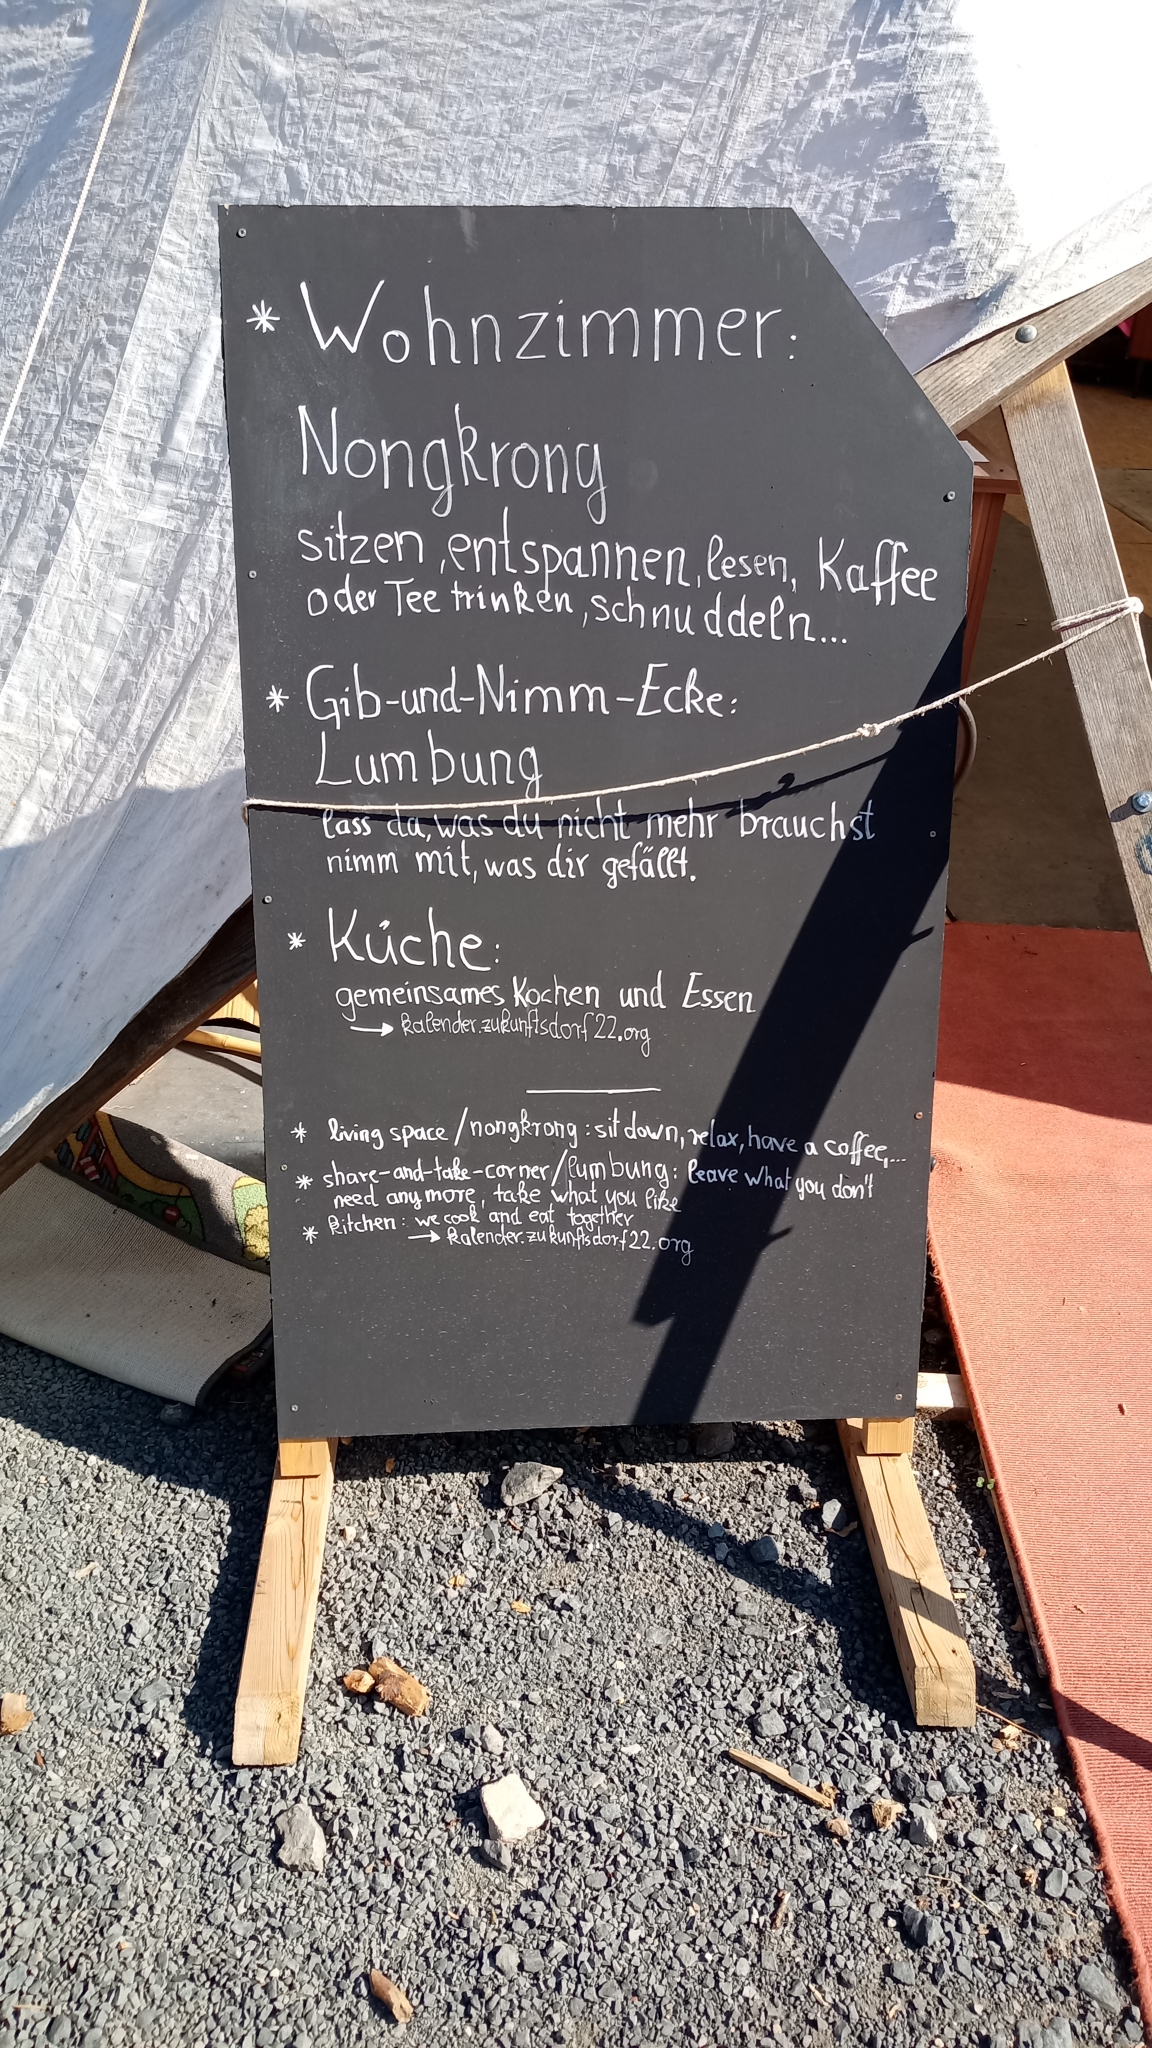 * Wohnzimmer:
Nongkrong
sitzen, entspannen, lesen, Kaffee
oder Tee trinken, schnuddeln...
* Gib-und-Nimm-Ecke:
Lumbung
lass da, was du nicht mehr brauchst
nimm mit, was dir gefällt.
* Küche:
gemeinsames Kochen und Essen
→ kalender.zukunftsdorf22.org
* living space/nongkrong: sit down, relax, have a coffee,...
* share-and-take-corner/lumbung: leave what you don't
need any more, take what you like
* kitchen: we cook and eat together
→ kalender.zukunftsdorf22.org